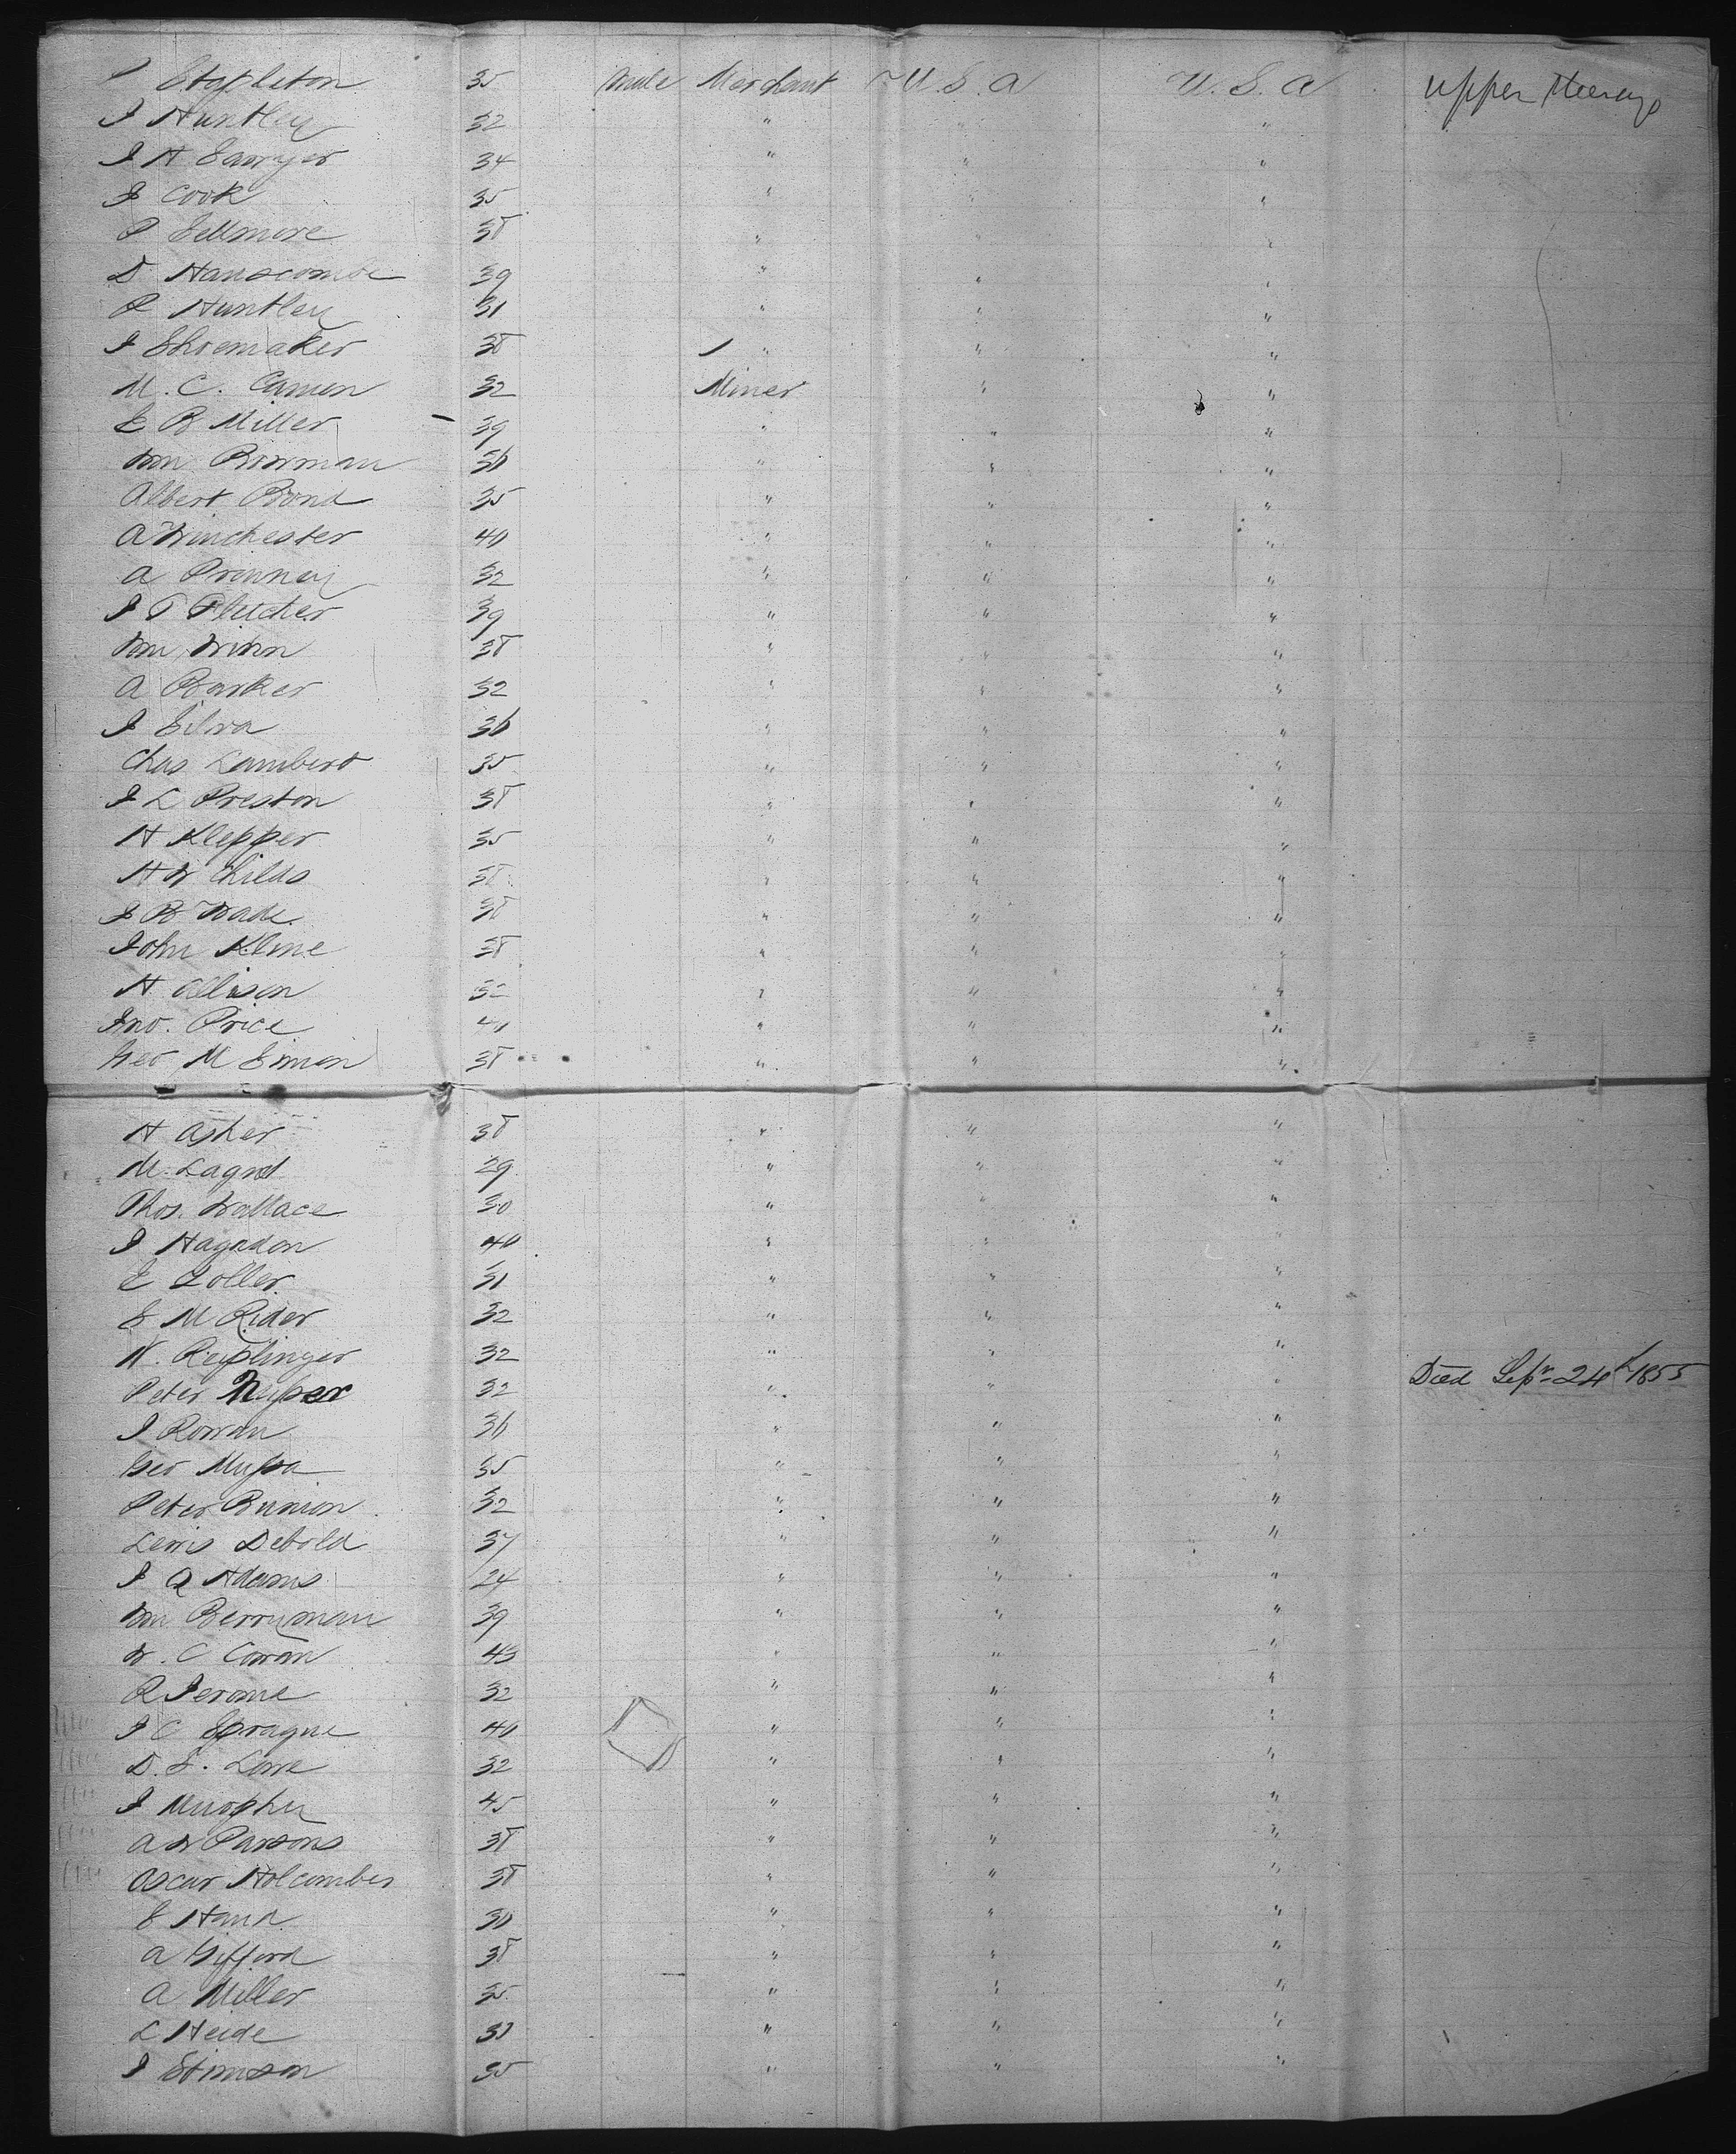 Stapleton 35 male Merchant U. S. A U. S. A upper
J Huntley 32 " " "
J H Sawyer 34 " " "
J Cook 35 " " "
P Sellmore 38 " " "
D Hanscombe 39 " " "
R Huntley 31 " " "
J Shoemaker 38 " " "
M. C. Camon 32 Miner " "
E B Miller 39 " " "
Wm Bowman 36 " " "
Albert Bond 35 " " "
A Winchester 40 " " "
A 32 " " "
J P Fletcher 39 " " "
Wm Winn 38 " " "
A Barker 32 " " "
J Silva 36 " " "
Chas Lambert 35 " " "
J L Preston 38 " " "
H Klepper 35 " " "
H W Childs 38 " " "
J B Wade 38 " " "
John Kline 38 " " "
H Allison 32 " " "
Jno. Price 40 " " "
Geo M Simon 38 " " "
H Asher 38 " " "
M. 29 " " "
Thos. Wallace 30 " " "
J Hagadon 40 " " "
E Zoller 31 " " "
S M Rider 32 " " "
N. Replinger 32 " " "
Peter 32 " " " Died Sepr 24th 1855
J Rowan 36 " " "
Geo 35 " " "
Peter Bunion 32 " " "
Lewis Debold 37 " " "
J Q Adams 24 " " "
Wm Berryman 39 " " "
W. C Cowan 43 " " "
R Jerome 32 " " "
J C Sprague 40 " " "
D. S. Lowe 32 " " "
J Murphy 45 " " "
A W Parsons 38 " " "
Oscar Holcomber 38 " " "
S Hand 30 " " "
A Gifford 38 " " "
A Miller 35 " " "
L Heide 37 " " "
J Stimson 35 " " "